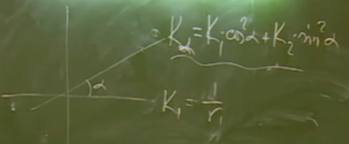 = K_α = K₁ cos²α + K₂ sin²α
α
K₁ = 1/r₁